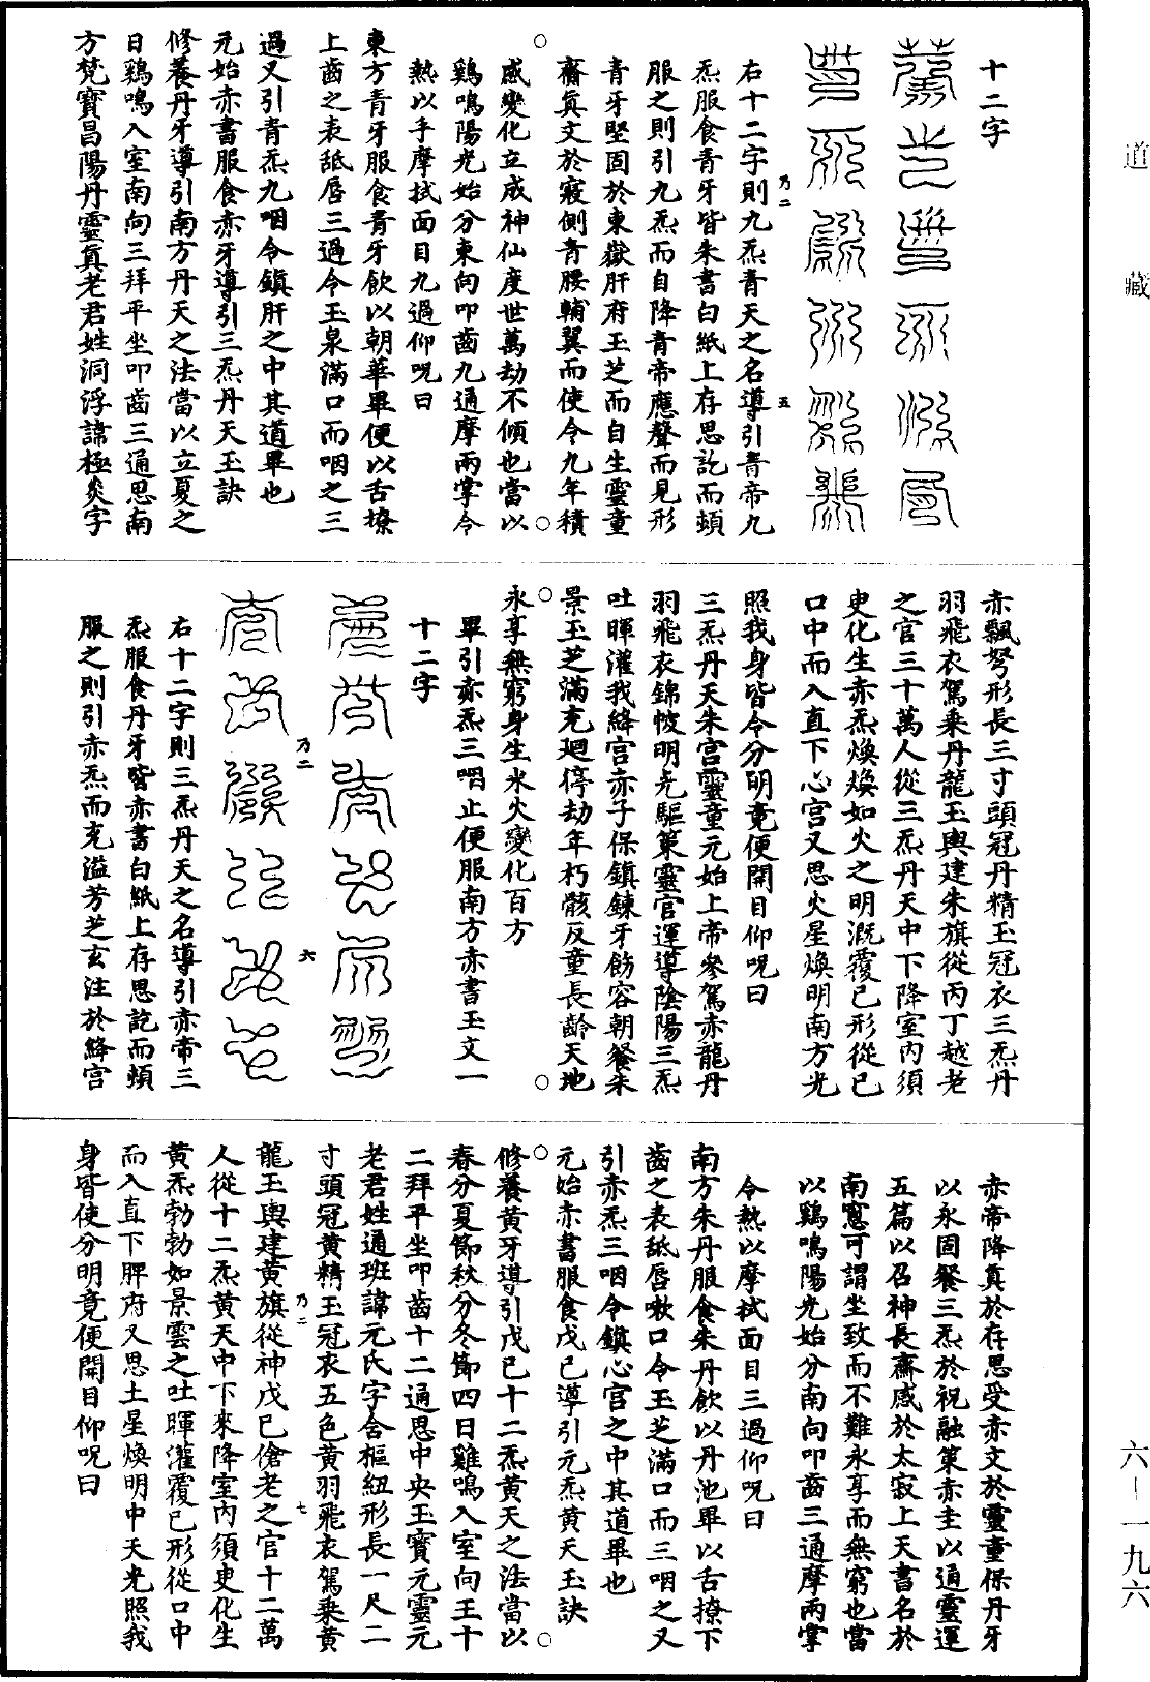 道藏
十二字
右十二字則九炁青天之名導引青帝九
炁服食青牙皆朱書白紙上存思訖而頻
服之則引九炁而自降青帝應聲而見形
青牙堅固於東嶽肝府玉芝而自生靈童
齋真文於寢側青腰輔翼而使令九年積
感變化立成神仙度世萬劫不傾也當以
鷄鳴陽光始分東向叩齒九通摩兩掌令
熱以手摩拭面目九過仰呪曰
東方青牙服食青牙飲以朝華畢便以舌撩
上齒之表舐唇三過令玉泉滿口而咽之三
過又引青炁九咽令鎮肝之中其道畢也
元始赤書服食赤牙導引三炁丹天玉訣
修養丹牙導引南方丹天之法當以立夏之
日鷄鳴入室南向三拜平坐叩齒三通思南
方梵寶昌陽丹靈真老君姓洞浮諱極炎字
赤飄弩形長三寸頭冠丹精玉冠衣三炁丹
羽飛衣駕乘丹龍玉輿建朱旗從丙丁越老
之官三十萬人從三炁丹天中下降室內須
臾化生赤炁煥煥如火之明溉覆己形從己
口中而入直下心宮又思火星煥明南方光
照我身皆令分明竟便開目仰呪曰
三炁丹天朱宮靈童元始上帝參駕赤龍丹
羽飛衣錦帔明光驅策靈官運導陰陽三炁
吐暉灌我絳宮赤子保鎮鍊牙飭容朝餐朱
景玉芝滿充迴停劫年朽骸反童長齡天地
永享無窮身生水火變化百方
畢引赤炁三咽止便服南方赤書玉文一
十二字
右十二字則三炁丹天之名導引赤帝三
炁服食丹牙皆赤書白紙上存思訖而頻
服之則引赤炁而充溢芳芝玄注於絳宮
赤帝降真於存思受赤文於靈童保丹牙
以永固餐三炁於祝融策赤圭以通靈運
五篇以召神長齋感於太寂上天書名於
南窻可謂坐致而不難永享而無窮也當
以鷄鳴陽光始分南向叩齒三通摩兩掌
令熱以摩拭面目三過仰呪曰
南方朱丹服食朱丹飲以丹池畢以舌撩下
齒之表舐唇嗽口令玉芝滿口而三咽之又
引赤炁三咽令鎮心宮之中其道畢也
元始赤書服食戊己導引元炁黃天玉訣
修養黃牙導引戊己十二炁黃天之法當以
春分夏節秋分冬節四日雞鳴入室向王十
二拜平坐叩齒十二通思中央玉寶元靈元
老君姓通班諱元氏字含樞紐形長一尺二
寸頭冠黃精玉冠衣五色黃羽飛衣駕乘黃
龍玉輿建黃旗從神戊己傖老之官十二萬
人從十二炁黃天中下來降室內須臾化生
黃炁勃勃如景雲之吐暉灌覆己形從口中
而入直下脾府又思土星煥明中天光照我
身皆使分明竟便開目仰呪曰
六—一九六